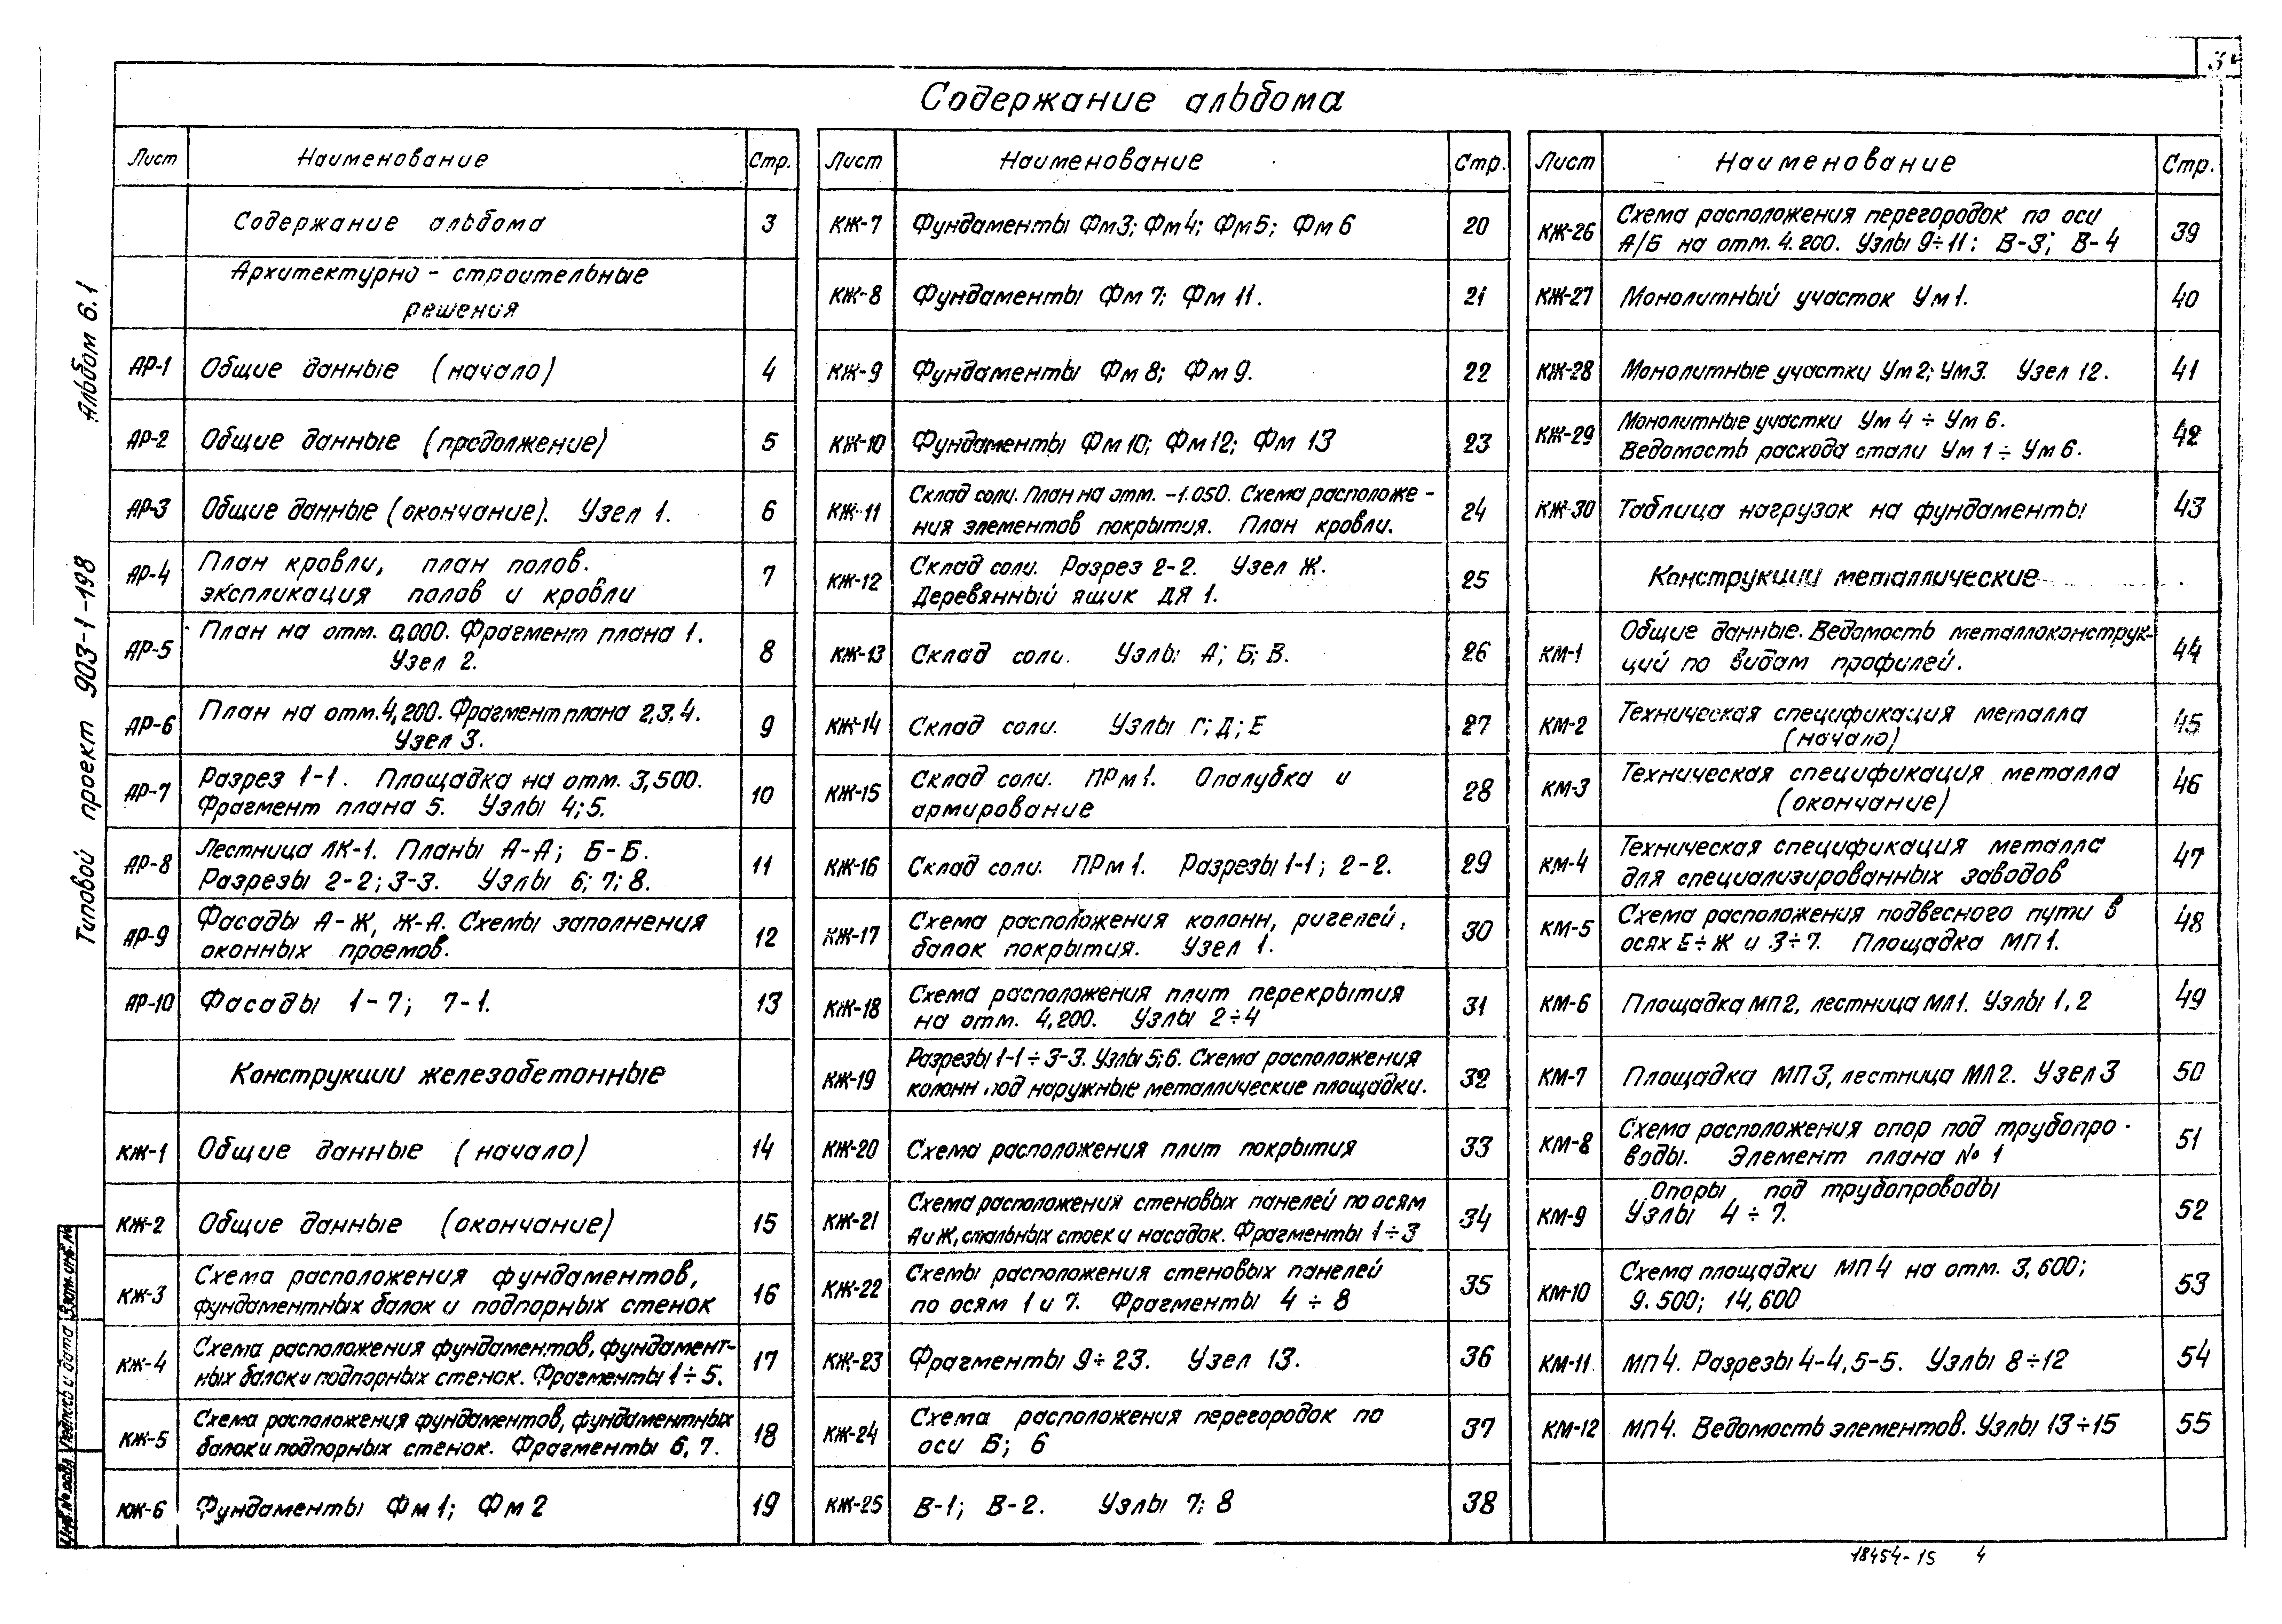 3
Содержание альбома
Альбом 6.1
Типовой проект 903-1-198
Лист Наименование Стр.
Содержание альбома 3
Архитектурно-строительные
решения
АР-1 Общие данные (начало) 4
АР-2 Общие данные (продолжение) 5
АР-3 Общие данные (окончание). Узел 1. 6
АР-4 План кровли, план полов. 7
экспликация полов и кровли
АР-5 План на отм. 0,000. Фрагмент плана 1. 8
Узел 2.
АР-6 План на отм. 4,200. Фрагмент плана 2,3,4. 9
Узел 3.
АР-7 Разрез 1-1. Площадка на отм. 3,500. 10
Фрагмент плана 5. Узлы 4;5.
АР-8 Лестница ЛК-1. Планы А-А; Б-Б. 11
Разрезы 2-2; 3-3. Узлы 6; 7; 8.
АР-9 Фасады А-Ж, Ж-А. Схемы заполнения 12
оконных проемов.
АР-10 Фасады 1-7; 7-1. 13
Конструкции железобетонные
КЖ-1 Общие данные (начало) 14
КЖ-2 Общие данные (окончание) 15
КЖ-3 Схема расположения фундаментов, 16
фундаментных балок и подпорных стенок
КЖ-4 Схема расположения фундаментов, фундамент- 17
ных балок и подпорных стенок. Фрагменты 1÷5.
КЖ-5 Схема расположения фундаментов, фундаментных 18
балок и подпорных стенок. Фрагменты 6, 7.
КЖ-6 Фундаменты Фм 1; Фм 2 19
Лист Наименование Стр.
КЖ-7 Фундаменты Фм3; Фм4; Фм5; Фм 6 20
КЖ-8 Фундаменты Фм 7; Фм 11. 21
КЖ-9 Фундаменты Фм 8; Фм 9. 22
КЖ-10 Фундаменты Фм 10; Фм 12; Фм 13 23
КЖ-11 Склад соли. План на отм. -1.050. Схема расположе- 24
ния элементов покрытия. План кровли.
КЖ-12 Склад соли. Разрез 2-2. Узел Ж. 25
Деревянный ящик ДЯ 1.
КЖ-13 Склад соли. Узлы А; Б; В. 26
КЖ-14 Склад соли. Узлы Г; Д; Е 27
КЖ-15 Склад соли. ПРм 1. Опалубка и 28
армирование
КЖ-16 Склад соли. ПРм 1. Разрезы 1-1; 2-2. 29
КЖ-17 Схема расположения колонн, ригелей, 30
балок покрытия. Узел 1.
КЖ-18 Схема расположения плит перекрытия 31
на отм. 4,200. Узлы 2÷4
КЖ-19 Разрезы 1-1÷3-3. Узлы 5;6. Схема расположения 32
колонн под наружные металлические площадки.
КЖ-20 Схема расположения плит покрытия 33
КЖ-21 Схема расположения стеновых панелей по осям 34
А и Ж, стальных стоек и насадок. Фрагменты 1÷3
КЖ-22 Схемы расположения стеновых панелей 35
по осям 1 и 7. Фрагменты 4÷8
КЖ-23 Фрагменты 9÷23. Узел 13. 36
КЖ-24 Схема расположения перегородок по 37
оси Б; 6
КЖ-25 В-1; В-2. Узлы 7; 8 38
Лист Наименование Стр.
КЖ-26 Схема расположения перегородок по оси 39
А/Б на отм. 4.200. Узлы 9÷11; В-3; В-4
КЖ-27 Монолитный участок Ум 1. 40
КЖ-28 Монолитные участки Ум 2; Ум3. Узел 12. 41
КЖ-29 Монолитные участки Ум 4÷Ум 6. 42
Ведомость расхода стали Ум 1÷Ум 6.
КЖ-30 Таблица нагрузок на фундаменты 43
Конструкции металлические
КМ-1 Общие данные. Ведомость металлоконструк- 44
ций по видам профилей.
КМ-2 Техническая спецификация металла 45
(начало)
КМ-3 Техническая спецификация металла 46
(окончание)
КМ-4 Техническая спецификация металла 47
для специализированных заводов
КМ-5 Схема расположения подвесного пути в 48
осях Е÷Ж и 3÷7. Площадка МП 1.
КМ-6 Площадка МП 2, лестница МЛ1. Узлы 1, 2 49
КМ-7 Площадка МП 3, лестница МЛ 2. Узел 3 50
КМ-8 Схема расположения опор под трубопро- 51
воды. Элемент плана № 1
КМ-9 Опоры под трубопроводы 52
Узлы 4÷7.
КМ-10 Схема площадки МП 4 на отм. 3,600; 53
9.500; 14,600
КМ-11 МП 4. Разрезы 4-4, 5-5. Узлы 8÷12 54
КМ-12 МП 4. Ведомость элементов. Узлы 13÷15 55
Инв.№ подл. Подпись и дата Взам.инв.№
18454-15 4